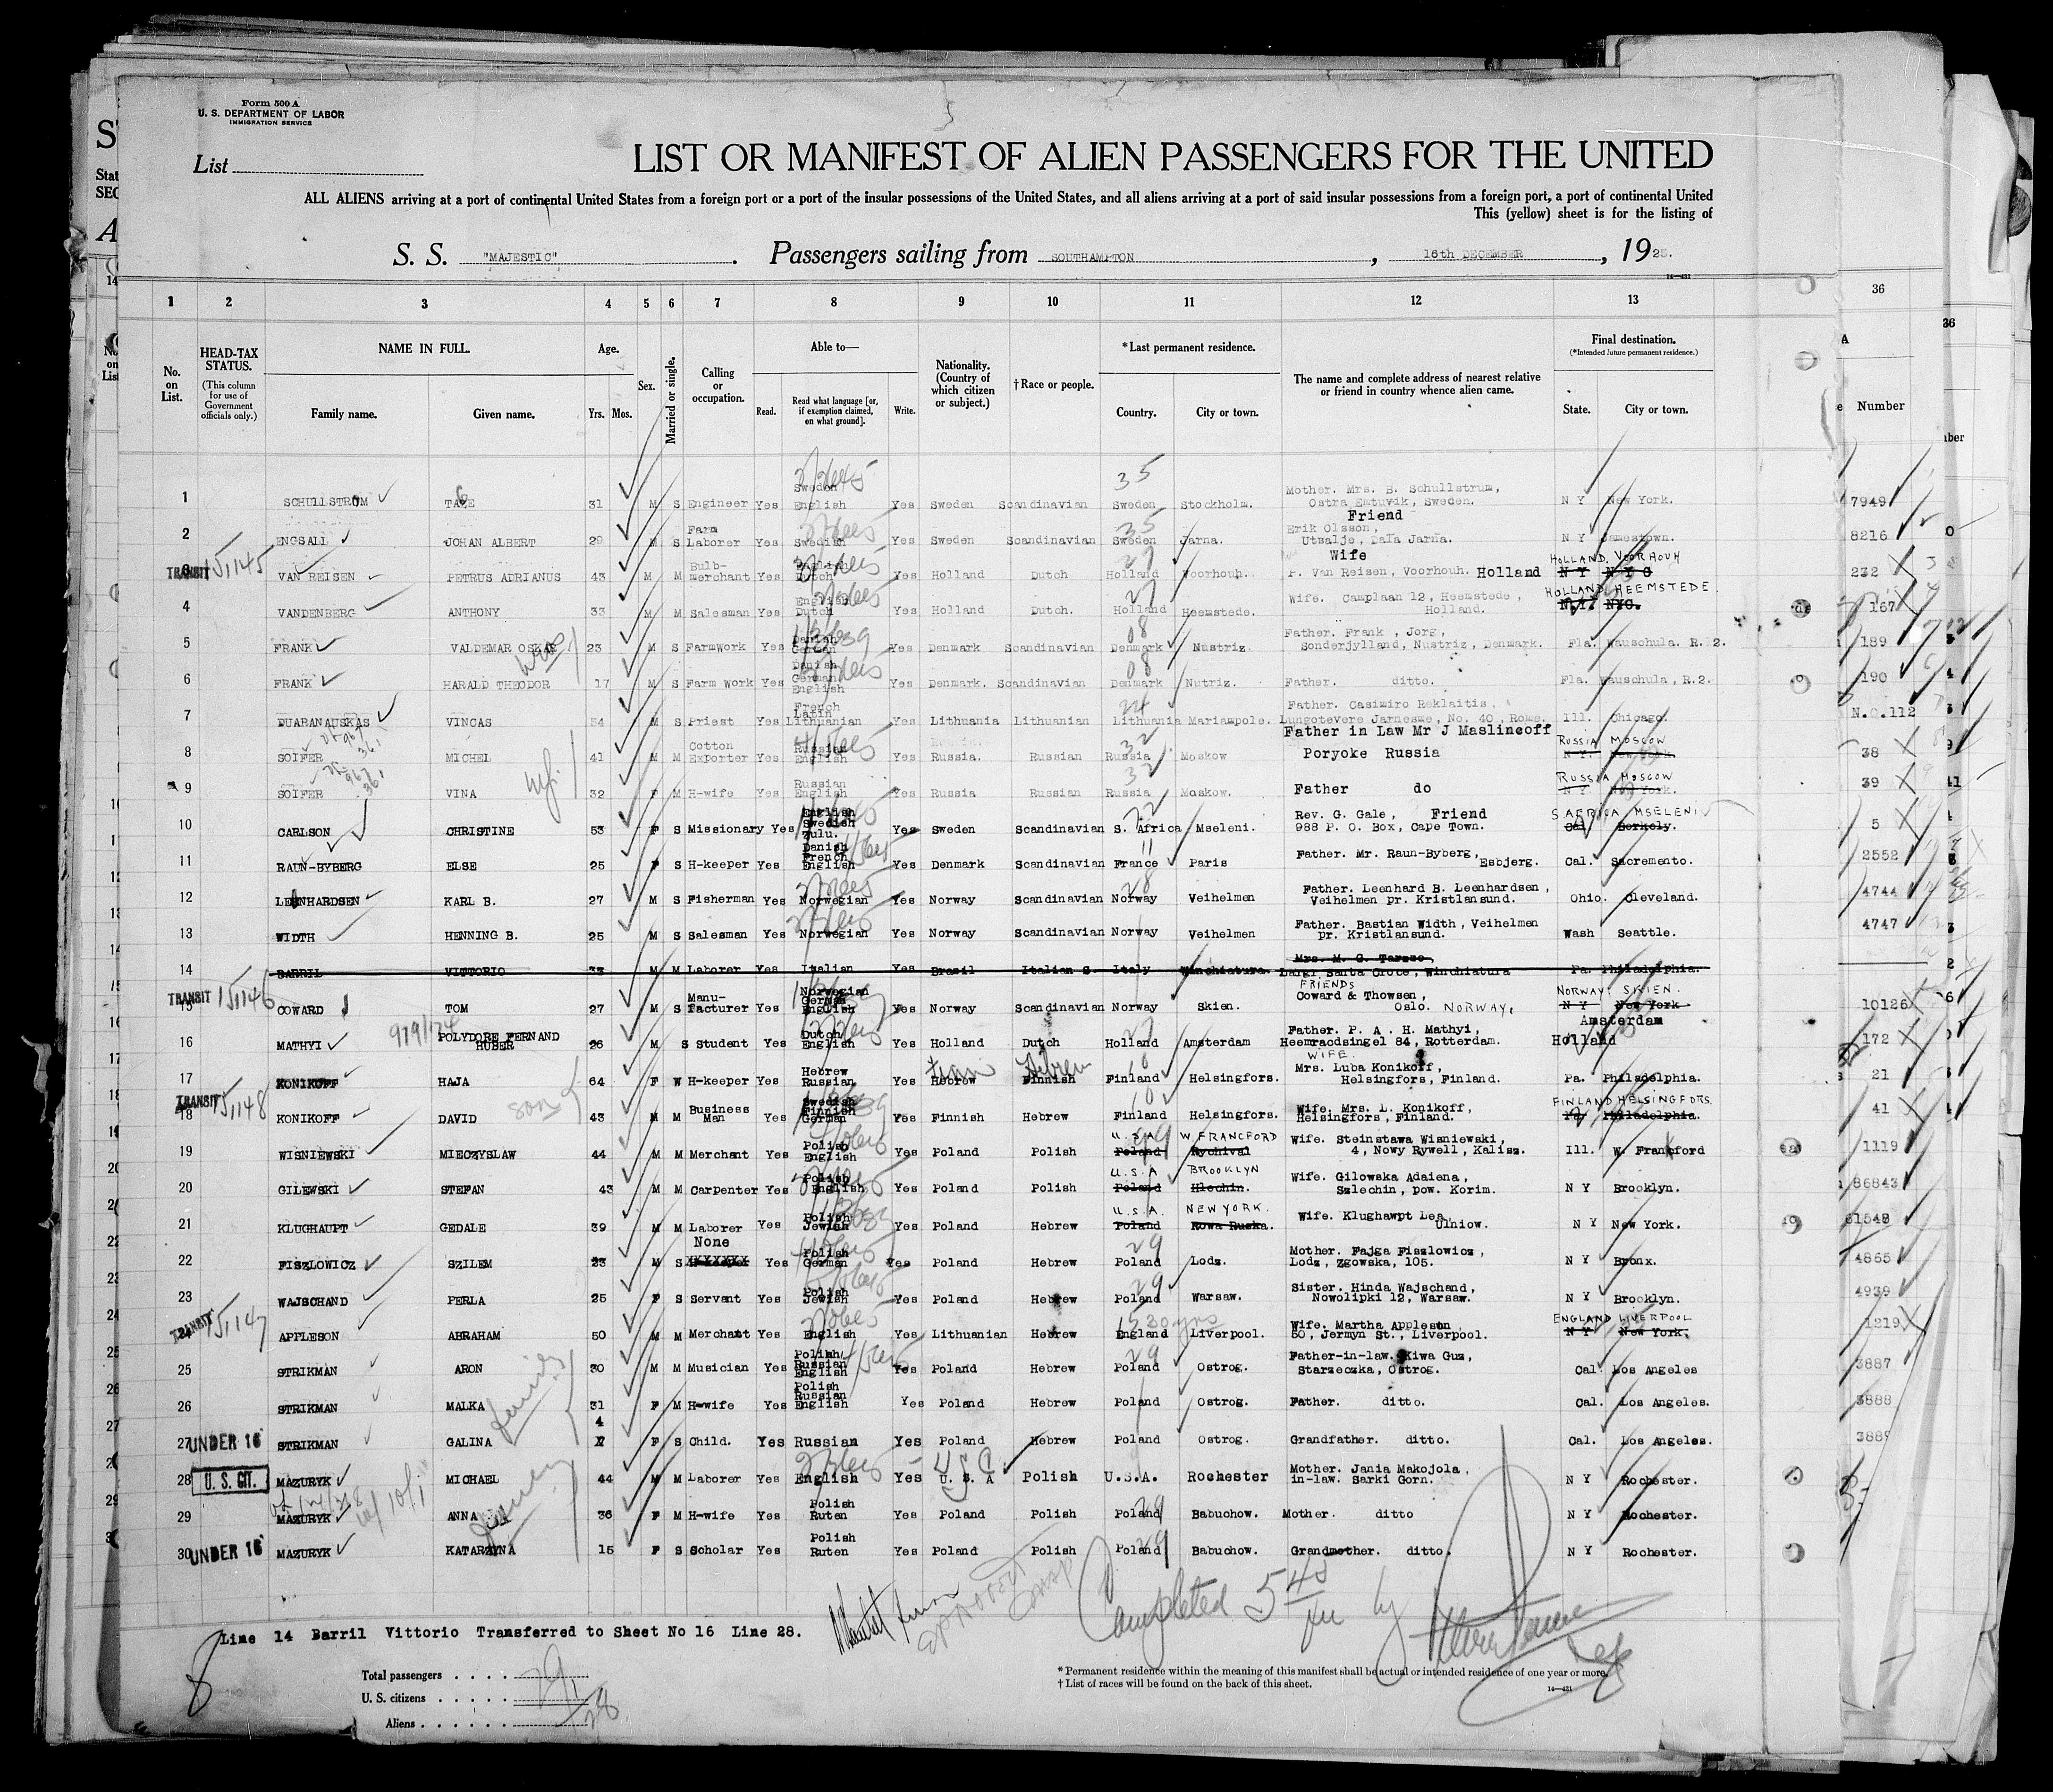 Form 500 A
U. S. DEPARTMENT OF LABOR
IMMIGRATION SERVICE
List
LIST OR MANIFEST OF ALIEN PASSENGERS FOR THE UNITED
ALL ALIENS arriving at a port of continental United States from a foreign port or a port of the insular possessions of the United States, and all aliens arriving at a port of said insular possessions from a foreign port, a port of continental United
This (yellow) sheet is for the listing of
S. S. "MAJESTIC". Passengers sailing from SOUTHAMPTON, 16th DECEMBER, 1925.
14—431
1 2 3 4 5 6 7 8 9 10 11 12 13 36
No. on List.
HEAD-TAX STATUS.
(This column for use of Government officials only.)
NAME IN FULL.
Family name. Given name.
Age.
Yrs. Mos.
Sex.
Married or single.
Calling or occupation.
Able to—
Read. Read what language [or, if exemption claimed, on what ground]. Write.
Nationality. (Country of which citizen or subject.)
†Race or people.
*Last permanent residence.
Country. City or town.
The name and complete address of nearest relative or friend in country whence alien came.
Final destination.
(*Intended future permanent residence.)
State. City or town.
Number
1 SCHULLSTROM TAGE 31 M S Engineer Yes Sweden English Yes Sweden Scandinavian Sweden Stockholm. Mother. Mrs. B. Schullstrum, Ostra Emtuvik, Sweden. N Y New York. 7949
2 ENGSALL JOHAN ALBERT 29 M S Farm Laborer Yes Swedish Yes Sweden Scandinavian Sweden Jarna. Friend Erik Olsson, Utwalje, Dala Jarna. N Y Jamestown. 8216
TRANSIT 151145
3 VAN REISEN PETRUS ADRIANUS 43 M M Bulb-merchant Yes English Dutch Yes Holland Dutch Holland Voorhouh. Wife P. Van Reisen, Voorhouh. Holland HOLLAND VOORHOUH N Y N Y C 232
4 VANDENBERG ANTHONY 33 M M Salesman Yes English Dutch Yes Holland Dutch. Holland Heemstede. Wife. Camplaan 12, Heemstede, Holland. HOLLAND HEEMSTEDE. N.Y. NYC. 167
5 FRANK VALDEMAR OSKAR 23 M S FarmWork Yes Danish German Yes Denmark Scandinavian Denmark Nustriz. Father. Frank, Jorg, Sonderjylland, Nustriz, Denmark. Fla. Wauschula. R.2. 189
6 FRANK HARALD THEODOR 17 M S Farm Work Yes Danish German English Yes Denmark. Scandinavian Denmark Nutriz. Father. ditto. Fla. Wauschula, R.2. 190
7 DUABANAUSKAS VINCAS 54 M S Priest Yes French Latin Lithuanian Yes Lithuania Lithuanian Lithuania Mariampole. Father. Casimiro Reklaitis, Lungotevere Jarnesme, No. 40, Rome. Ill. Chicago. N.Q.112
8 SOIFER MICHEL 41 M M Cotton Exporter Yes Russian English Yes Russia. Russian Russia Moskow Father in Law Mr J Maslineoff Poryoke Russia RUSSIA MOSCOW N Y. New York. 38
9 SOIFER VINA 32 F M H-wife Yes Russian English Yes Russia Russian Russia Moskow. Father do RUSSIA MOSCOW N Y. New York. 39
10 CARLSON CHRISTINE 53 F S Missionary Yes English Swedish Zulu. Yes Sweden Scandinavian S. Africa Mseleni. Rev. G. Gale, Friend 988 P. O. Box, Cape Town. S AFRICA MSELENI Cal Berkely. 5
11 RAUN-BYBERG ELSE 25 F S H-keeper Yes Danish French English Yes Denmark Scandinavian France Paris Father. Mr. Raun-Byberg, Esbjerg. Cal. Sacremento. 2552
12 LEENHARDSEN KARL B. 27 M S Fisherman Yes Norwegian Yes Norway Scandinavian Norway Veihelmen Father. Leenhard B. Leenhardsen, Veihelmen pr. Kristlansund. Ohio. Cleveland. 4744
13 WIDTH HENNING B. 25 M S Salesman Yes Norwegian Yes Norway Scandinavian Norway Veihelmen Father. Bastian Width, Veihelmen pr. Kristlansund. Wash Seattle. 4747
14 BARRIL VITTORIO 33 M M Laborer Yes Italian Yes Brazil Italian S. Italy Winchiatura. Mrs. M. G. Tarzzo, Largi Santa Croce, Winchiatura Pa. Philadelphia.
TRANSIT 151146
15 COWARD TOM 27 M S Manufacturer Yes Norwegian German English Yes Norway Scandinavian Norway Skien. FRIENDS Coward & Thowsen, Oslo. NORWAY. NORWAY. SKIEN. N Y New York 10126
16 MATHYI 979/174 POLYDORE FERNAND HUBER 26 M S Student Yes Dutch English Yes Holland Dutch Holland Amsterdam Father. P. A. H. Mathyi, Heemraodsingel 84, Rotterdam. Amsterdam Holland 172
17 KONIKOFF HAJA 64 F W H-keeper Yes Hebrew Russian Yes Hebrew Finn Finnish Hebrew Finland Helsingfors. WIFE. Mrs. Luba Konikoff, Helsingfors, Finland. Pa. Philadelphia. 21
TRANSIT 151148
18 KONIKOFF DAVID son 43 M M Business Man Yes Swedish Finnish German Yes Finnish Hebrew Finland Helsingfors. Wife. Mrs. L. Konikoff, Helsingfors, Finland. FINLAND HELSINGFORS. Pa Philadelphia. 41
19 WISNIEWSKI MIECZYSLAW 44 M M Merchant Yes Polish English Yes Poland Polish U.S.A W FRANCFORD Poland Rychival Wife. Steinstawa Wisniewski, 4, Nowy Rywell, Kalisz. Ill. W. Frankford 1119
20 GILEWSKI STEFAN 43 M M Carpenter Yes Polish English Yes Poland Polish U.S.A BROOKLYN Poland Hlechin. Wife. Gilowska Adaiena, Szlechin, pow. Korim. N Y Brooklyn. 86843
21 KLUGHAUPT GEDALE 39 M M Laborer Yes Polish Jewish Yes Poland Hebrew U.S.A. NEW YORK. Poland Rowa Ruska. Wife. Klughawpt Lea, Ulniow. N Y New York. 61548
22 FISZLOWICZ SZILEM 23 M S None Yes Polish German Yes Poland Hebrew Poland Lodz. Mother. Fajga Fiszlowicz, Lodz, Zgowska, 105. N Y Bronx. 4865
23 WAJSCHAND PERLA 25 F S Servant Yes Polish Jewish Yes Poland Hebrew Poland Warsaw. Sister. Hinda Wajschand, Nowolipki 12, Warsaw. N Y Brooklyn. 4939
TRANSIT 151147
24 APPLESON ABRAHAM 50 M M Merchant Yes English Yes Lithuanian Hebrew England Liverpool. Wife. Martha Appleson, 50, Jermyn St., Liverpool. ENGLAND LIVERPOOL N Y New York. 1219
25 STRIKMAN ARON 30 M M Musician Yes Polish Russian English Yes Poland Hebrew Poland Ostrog. Father-in-law. Kiwa Guz, Starzeczka, Ostrog. Cal Los Angeles 3887
26 STRIKMAN MALKA 31 F M H-wife Yes Polish Russian English Yes Poland Hebrew Poland Ostrog. Father. ditto. Cal. Los Angeles. 3888
27 UNDER 16 STRIKMAN GALINA 4 F S Child. Yes Russian Yes Poland Hebrew Poland Ostrog. Grandfather. ditto. Cal. Los Angeles. 3889
28 U. S. CIT. MAZURYK MICHAEL 44 M M Laborer Yes English Yes U.S.A Polish U.S.A. Rochester Mother. Jania Makojola, in-law. Sarki Gorn. N Y Rochester.
29 MAZURYK ANNA 36 F M H-wife Yes Polish Ruten Yes Poland Polish Poland Babuchow. Mother. ditto N Y Rochester.
30 UNDER 16 MAZURYK KATARZYNA 15 F S Scholar Yes Polish Ruten Yes Poland Polish Poland Babuchow. Grandmother. ditto. N Y Rochester.
Completed 5 45 pm by
Line 14 Barril Vittorio Transferred to Sheet No 16 Line 28.
8
Total passengers . . . . 29
U. S. citizens . . . . . 1
Aliens . . . . . . 28
* Permanent residence within the meaning of this manifest shall be actual or intended residence of one year or more.
† List of races will be found on the back of this sheet.
14—431